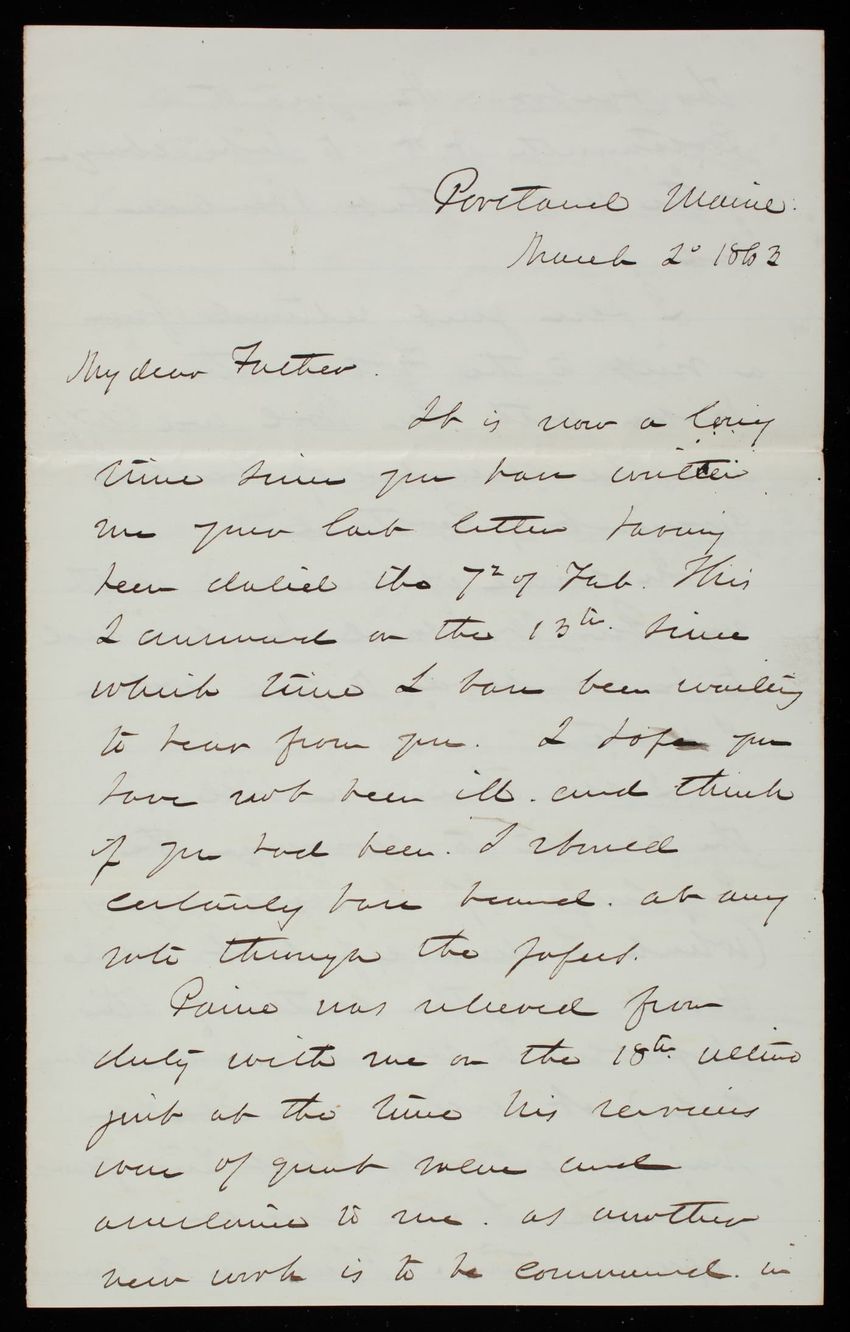 Portland Maine.
March 2d 1863
My dear Father.
It is now a long
time since you have written
me your last letter having
been dated the 7th of Feb. This
I answered on the 13th. since
which time I have been waiting
to hear from you. I hope you
have not been ill. and think
if you had been. I should
certainly have heard. at any
rate through the papers.
Paine was relieved from
duty with me on the 18th. ultimo
just at the time his services
were of great value and
assistance to me. as another
new work is to be commenced. in